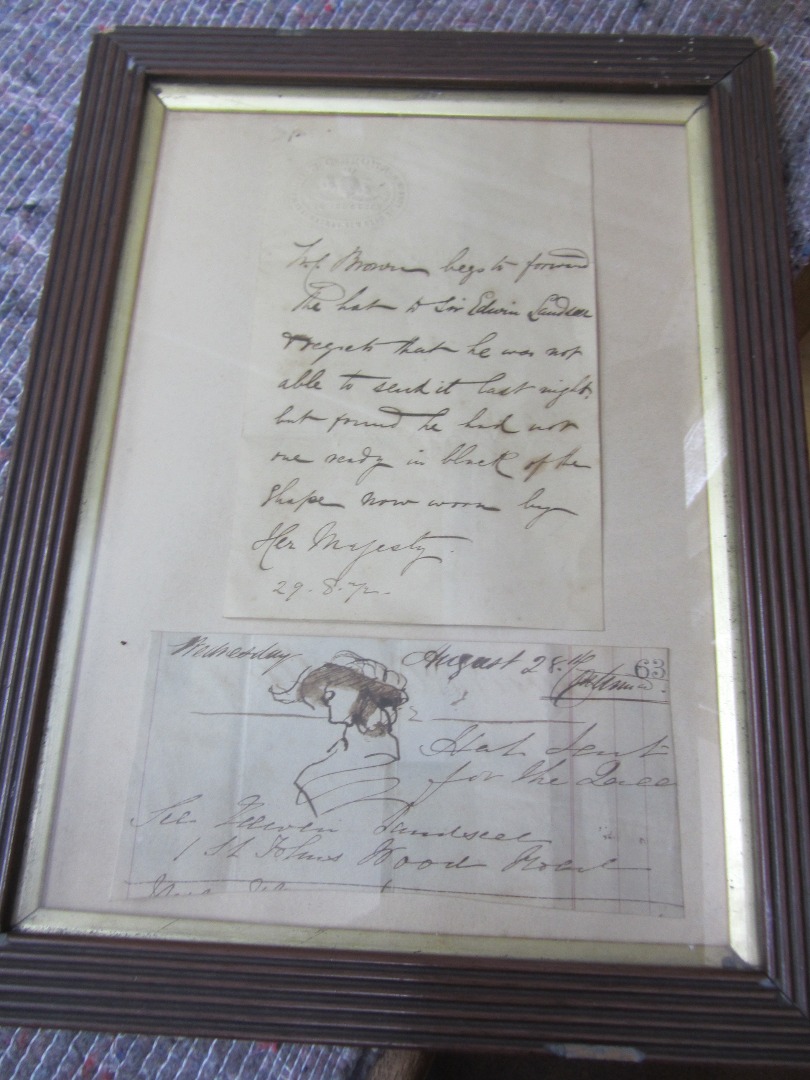 Mr Brown begs to forward
The hat to Sir Edwin Landseer
& regrets that he was not
able to send it last night,
but found he had not
one ready in black of the
shape now worn by
Her Majesty.
29.8.72.
Wednesday August 28th 63
Hat sent
for the Quee
See Landseer
1 St Johns Wood Road